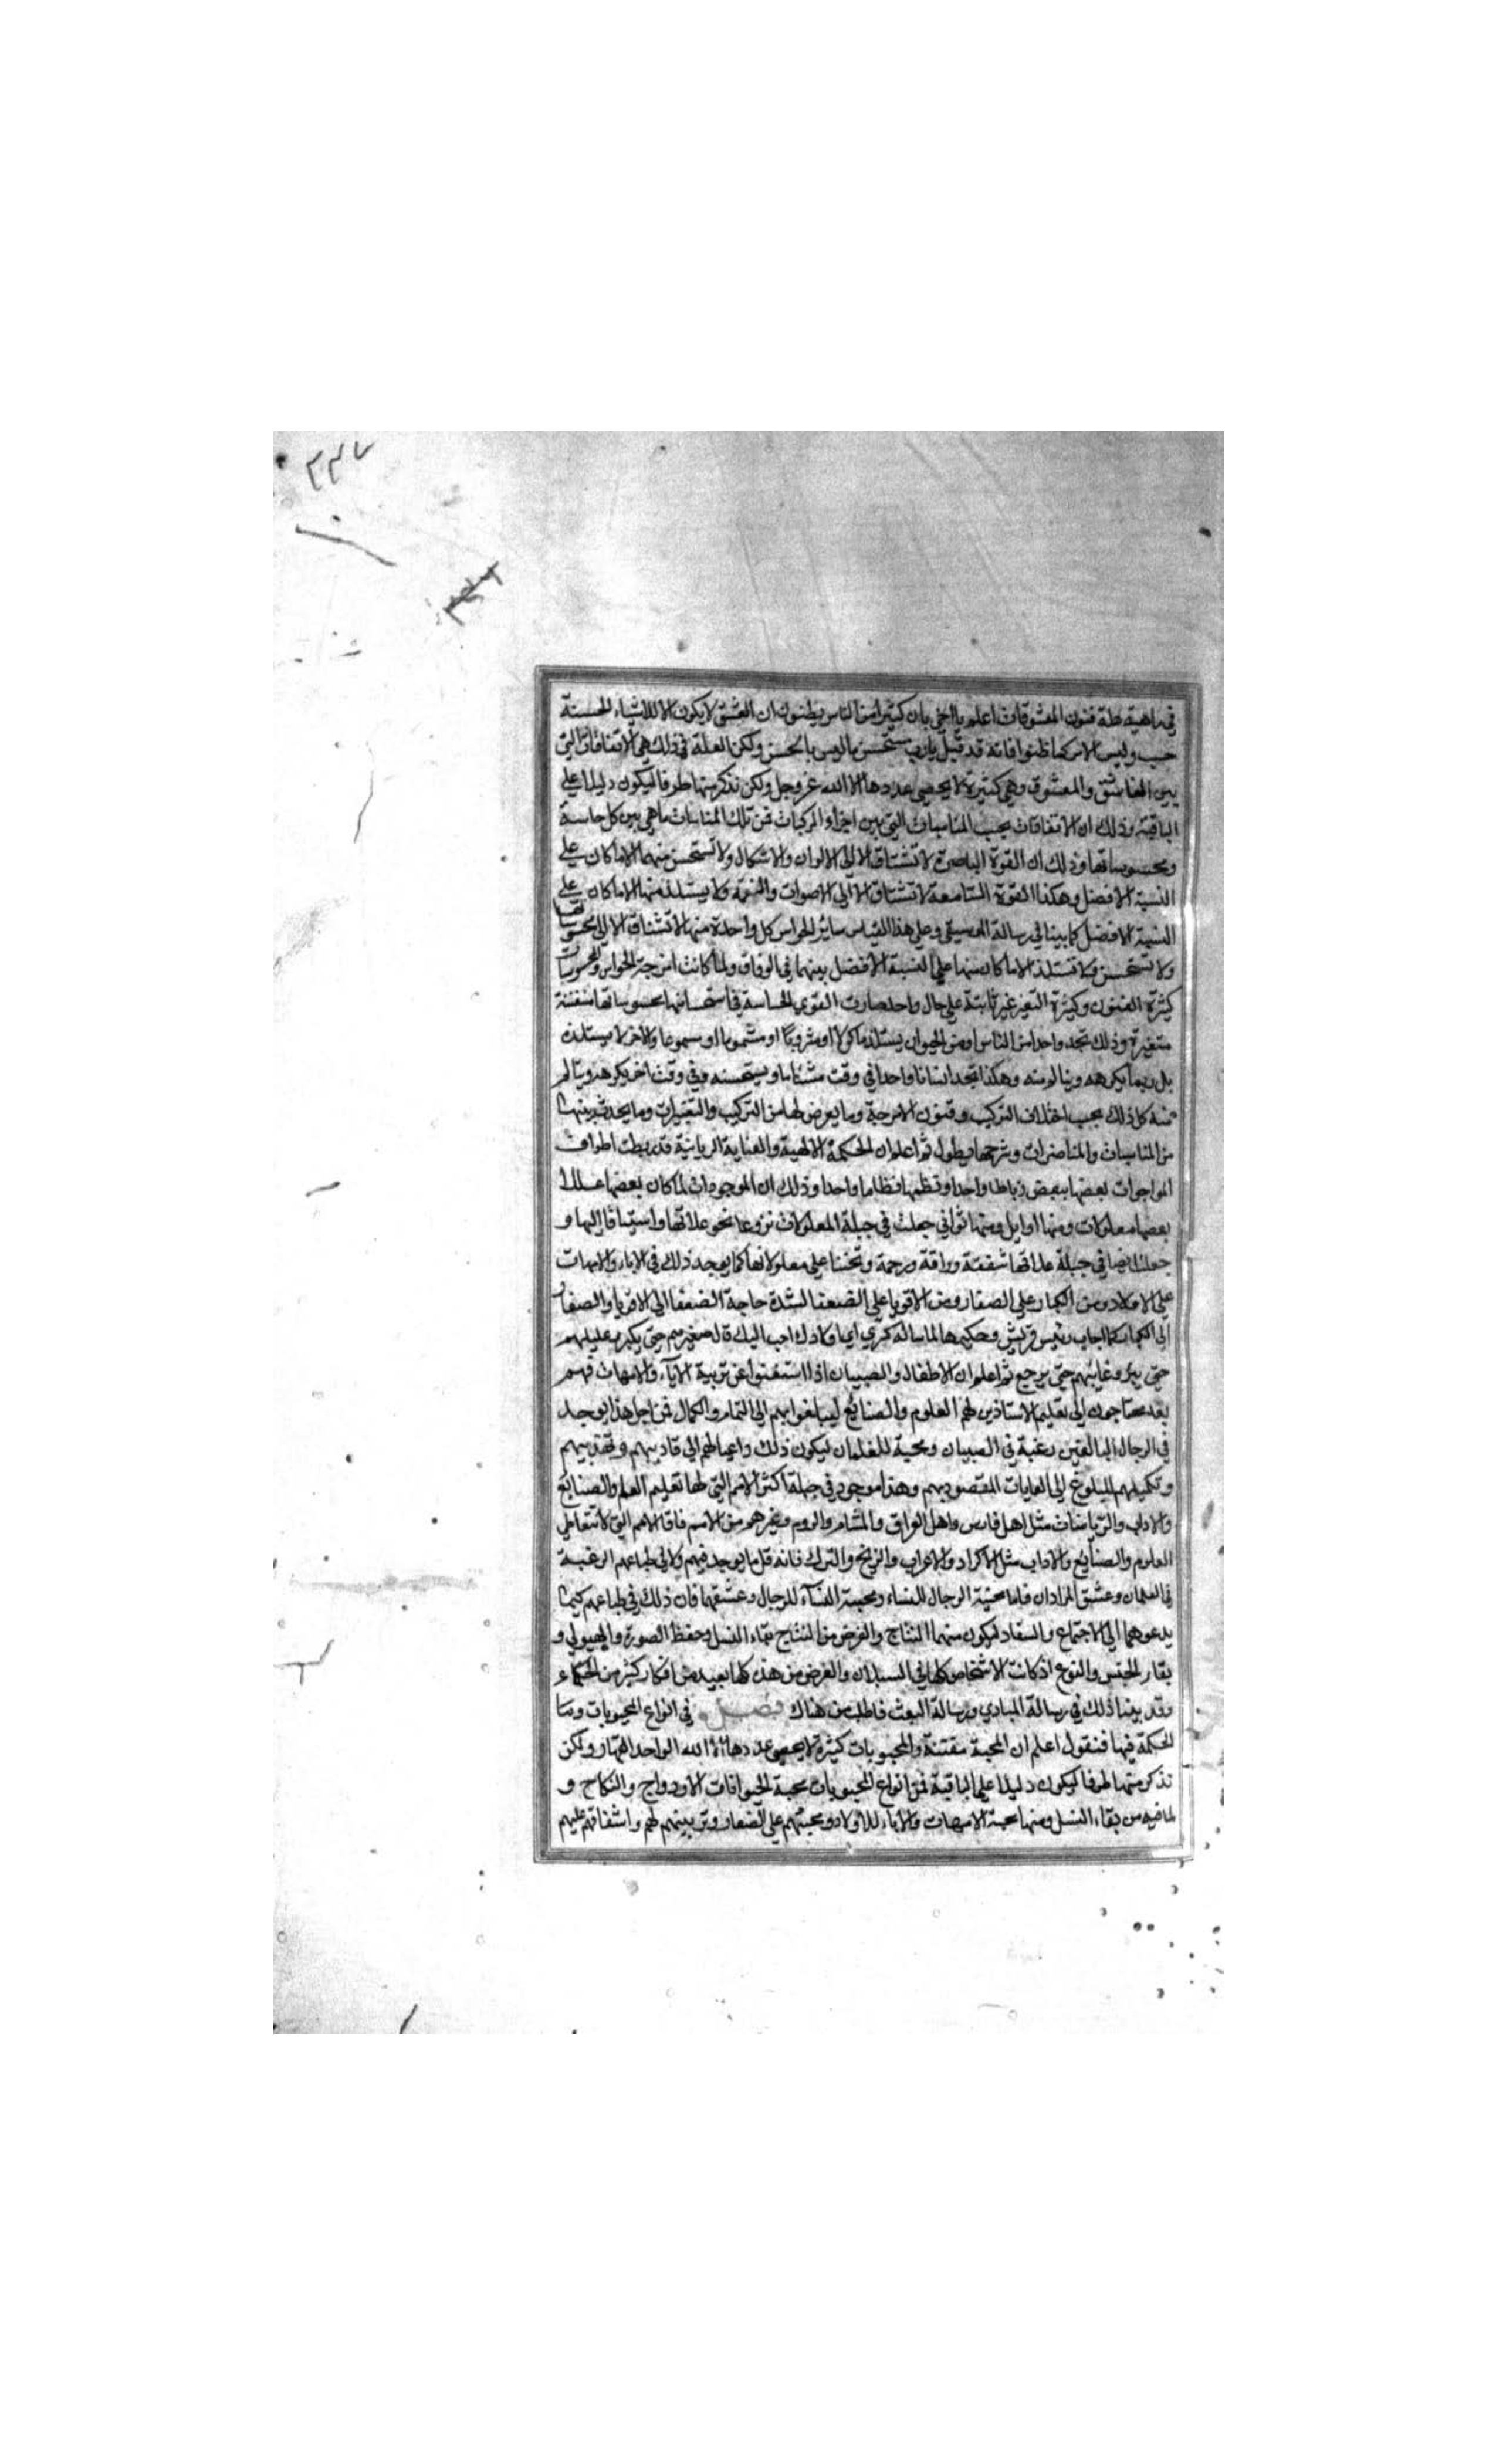 ٢٣٧
في ماهية علة فنون المعشوقات اعلم يا اخي بان كثيرا من الناس يظنون ان العشق لا يكون الا للاشياء الحسنة
حسب وليس الامر كما ظنوا فانه قد قيل يا رب مستحسن ما ليس بالحسن ولكن العلة في ذلك هي الاتفاقات التي
بين العاشق والمعشوق وهي كثيرة لا يحصي عددها الا الله عز وجل ولكن نذكر منها طرفا ليكون دليلا على
الباقية وذلك ان الاتفاقات بحسب المناسبات التي بين اجزاء المركبات فمن تلك المناسبات ما هي بين كل حاسة
ومحسوساتها وذلك ان القوة الباصرة لا تشتاق الا الى الالوان والاشكال ولا تستحسن منهما الا ما كان على
النسبة الافضل وهكذا القوة السامعة لا تشتاق الا الى الاصوات والنغمة ولا يستلذ منها الا ما كان على
النسبة الافضل كما بينا في رسالة الموسيقى وعلى هذا القياس سائر الحواس كل واحدة منها لا تشتاق الا الى محسوساتها
ولا تستحسن ولا تستلذ الا ما كان منها على النسبة الافضل بينهما في الوفاق ولما كانت امزجة الحواس والمحسوسات
كثيرة الفنون وكثيرة التغير غير ثابتة على حال واحد صارت القوى الحساسة في استحسانها محسوساتها مفننة
متغيرة وذلك تجد واحدا من الناس او من الحيوان يستلذ ماكولا او مشروبا او مشموما او مسموعا والاخر لا يستلذه
بل ربما يكرهه وينالم منه وهكذا تجد انسانا واحدا في وقت مشتاما ويستحسنه وفي وقت اخر يكرهه ويتالم
منه كل ذلك بحسب اختلاف التركيب وفنون الامزجة وما يعرض لها من التركيب والتغيرات وما يحدث بينها
من المناسبات والمنافرات وشرحها يطول ثم اعلم ان الحكمة الالهية والعناية الربانية قد ربطت اطراف
المواجوات بعضها ببعض رباطا واحدا ونظمها نظاما واحدا وذلك ان الموجودات لما كان بعضها عللا
بعضها معلولات ومنها اوايل ومنها ثواني جعلت في جبلة المعلولات نزوعا نحو علاتها واستياقا اليها و
جعلت ايضا في جبلة علاتها شفقة ورافة ورحمة وتحننا على معلولاتها كما يوجد ذلك في الاباء والامهات
على الاولاد ومن الكبار على الصغار ومن الاقويا على الضعفا لشدة حاجة الضعفا الى الاقويا والصغار
الى الكبار كما اجاب رئيس قريش وحكيمها لما ساله كسرى اي اولادك احب اليك قال صغيرهم حتى يكبر وعليلهم
حتى يبرا وغايبهم حتى يرجع ثم اعلم ان الاطفال والصبيان اذا استغنوا عن تربية الآباء والامهات فهم
بعد محتاجون الى تعليم الاستاذين لهم العلوم والصنائع ليبلغوا بهم الى التمام والكمال فمن اجل هذا يوجد
في الرجال البالغين رغبة في الصبيان ومحبة للغلمان ليكون ذلك داعيا لهم الى تاديبهم وتهذيبهم
وتكميلهم للبلوغ الى الغايات المقصود بهم وهذا موجود في جبلة اكثر الامم التي لها تعليم العلم والصنائع
والاداب والرياضات مثل اهل فارس واهل العراق والشام والروم وغيرهم من الامم فاما الامم التي لا تتعاطى
العلوم والصنايع والاداب مثل الاكراد والاعراب والزنج والترك فانه قل ما يوجد فيهم ولا في طباعهم الرغبة
في الغلمان وعشق المرادان فاما محبة الرجال للنساء ومحبة النسآء للرجال وعشقهما فان ذلك في طباعهم كيما
يدعوهما الى الاجتماع والسفاد ليكون منهما النتاج والغرض من النتاج بقاء النسل وحفظ الصورة والهيولي و
بقاء الجنس والنوع اذ كانت الاشخاص كلها في السيلان والغرض من هذه كلها بعيد من افكار كثير من الحكماء
وقد بينا ذلك في رسالة المبادي ورسالة البعث فاطلب من هناك فصل في انواع المحبوبات وما
الحكمة فيها فنقول اعلم ان المحبة مفتنة والمحبوبات كثيرة لا يحصى عددها الا الله الواحد القهار ولكن
نذكر منها طرفا ليكون دليلا على الباقية فمن انواع المحبوبات محبة الحيوانات الازدواج والنكاح و
لما فيه من بقاء النسل ومنها محبة الامهات والاباء للاولاد ومحبتهم على الصغار وتربيتهم لهم واشفاقهم عليهم